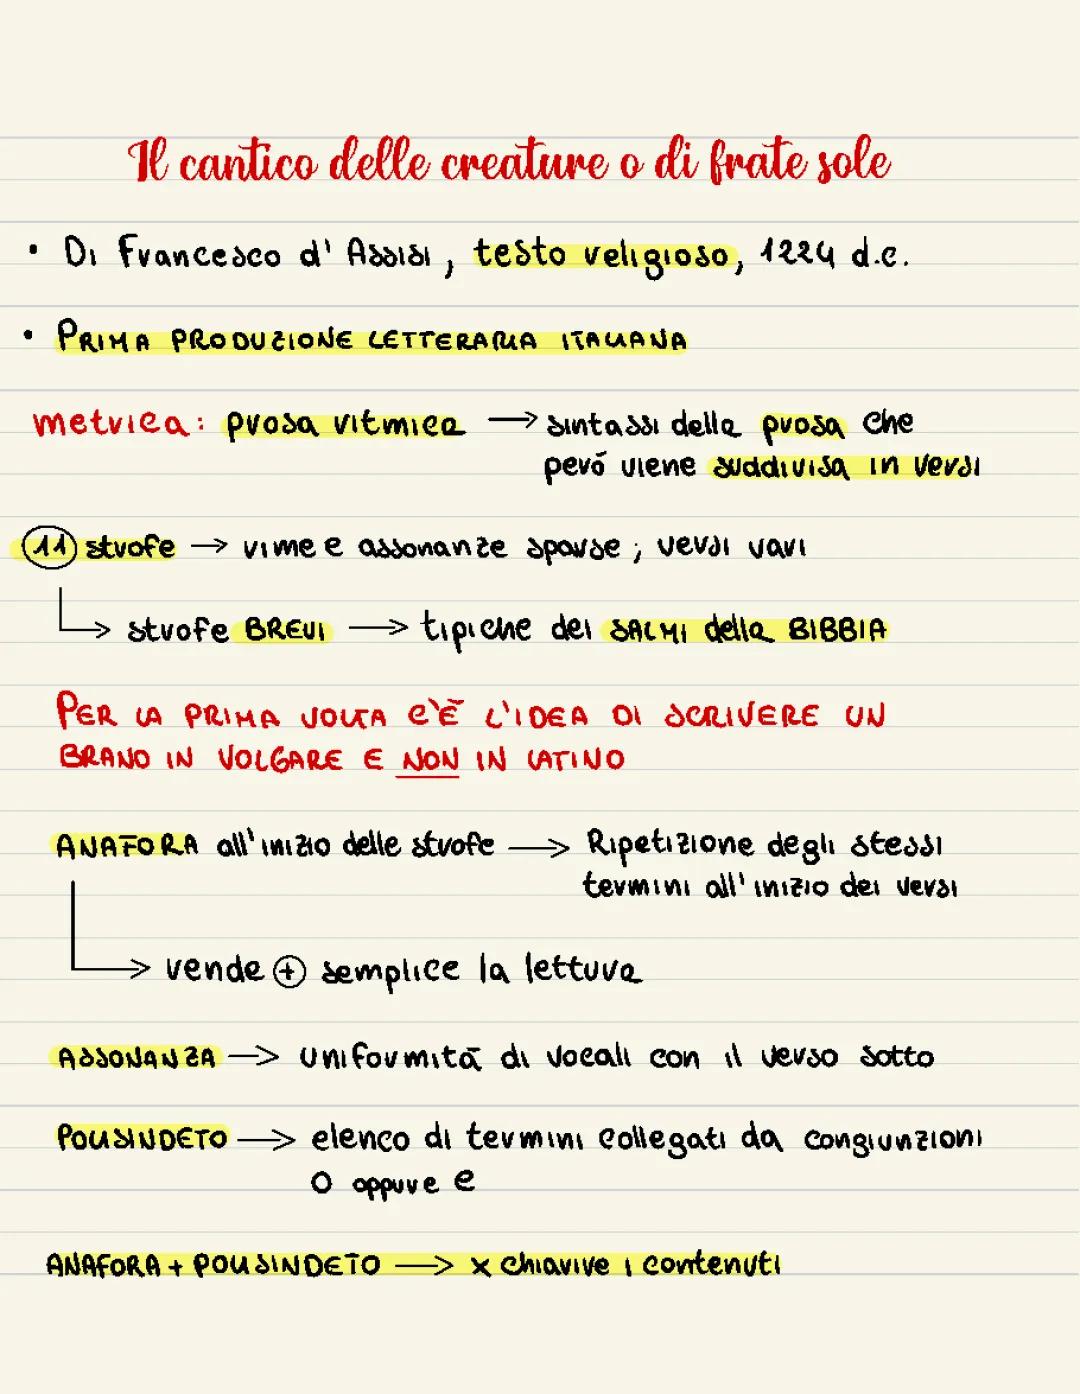 Il cantico delle creature o di frate sole
• Di Francesco d'Assisi, testo religioso, 1224 d.c.
• PRIMA PRODUZIONE LETTERARIA ITALIANA
metrica: prosa ritmica → sintassi della prosa che
però viene suddivisa in versi
11 strofe → rime e assonanze sparse; versi vari
→ strofe BREVI → tipiche dei SALMI della BIBBIA
PER LA PRIMA VOLTA C'È L'IDEA DI SCRIVERE UN
BRANO IN VOLGARE E NON IN LATINO
ANAFORA all'inizio delle strofe → Ripetizione degli stessi
termini all'inizio dei versi
→ rende + semplice la lettura
ASSONANZA → uniformità di vocali con il verso sotto
POLISINDETO → elenco di termini collegati da congiunzioni
o oppure e
ANAFORA + POLISINDETO → x chiarire i contenuti